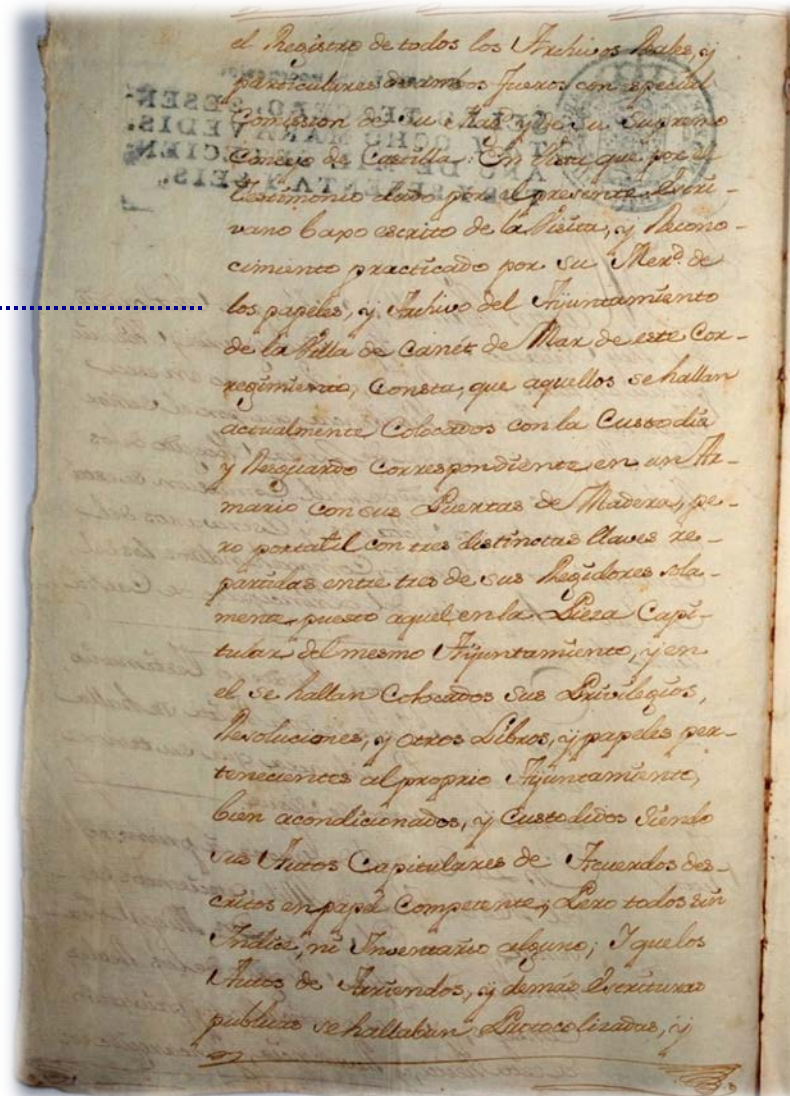 el Registro de todos los Archivos Reales, y
particulares de ambos fueros con especial
Comission de Su Magd. y de su Supremo
Consejo de Castilla: En Vista que por el
Testimonio dado por el presente Escri-
vano baxo escrito de la Visita, y Recono-
cimiento practicado por su Merd. de
los papeles, y Archivo del Ayuntamiento
de la Villa de Canét de Mar de este Cor-
regimiento, Consta, que aquellos se hallan
actualmente Colocados con la Custodia
y Resguardo Correspondiente en un Ar-
mario con sus Puertas de Madera, pe-
ro portatil con tres distinctas llaves re-
partidas entre tres de sus Regidores sola-
mente, puesto aquel en la Pieza Capi-
tular del mesmo Ayuntamiento, y en
el se hallan Colocados sus Privilegios,
Resoluciones, y otros Libros, y papeles per-
tenecientes al proprio Ayuntamiento,
bien acondicionados, y Custodidos Siendo
sus Autos Capitulares de Acuerdos des-
critos en papel Competente, Pero todos sin
Indice, ni Inventario alguno; Y que los
Autos de Arriendos, y demás Escrituras
publicas se hallaban Protocolizadas, y